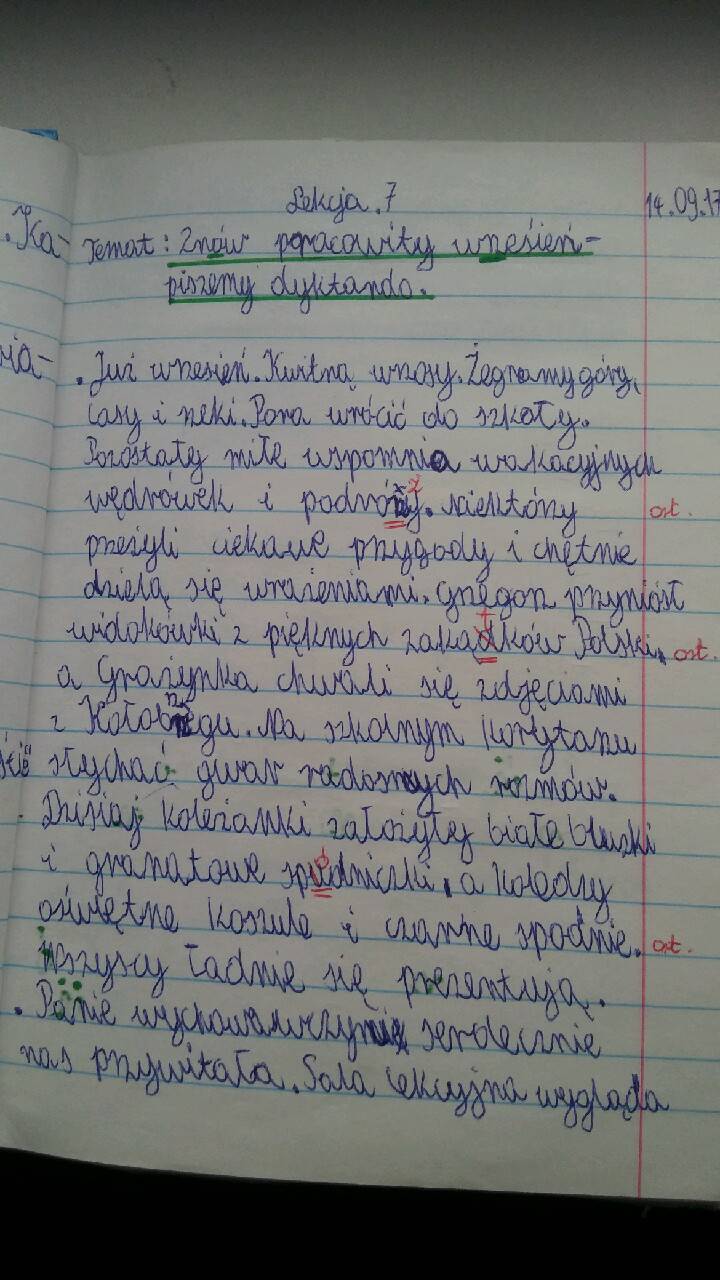 Lekcja. 7
14.09.17
.Ka-
Temat: Znów pracowity wrzesień-
piszemy dyktando.
nia-
. Już wrzesień. Kwitną wrzosy. Żegnamy góry,
lasy i rzeki. Pora wrócić do szkoły.
Pozostały miłe wspomnia wakacyjnych
wędrówek i podróży. Niektórzy ort.
przeżyli ciekawe przygody i chętnie
dzielą się wrażeniami. Grzegorz przyniósł
widokówki z pięknych zakądków Polski, ort.
t
a Grażynka chwali się zdjęciami
z Kołobrzegu. Na szkolnym kortytarzu
słychać gwar radosnych rozmów.
Dzisiaj koleżanki założyłey białe bluzki
i granatowe spudniczki, a koledzy
ó
oświętne koszule i czarne spodnie. ort.
Wszyscy ładnie się prezentują.
. Panie wychowawczynie serdecznie
nas przywitała. Sala lekcyjna wygląda